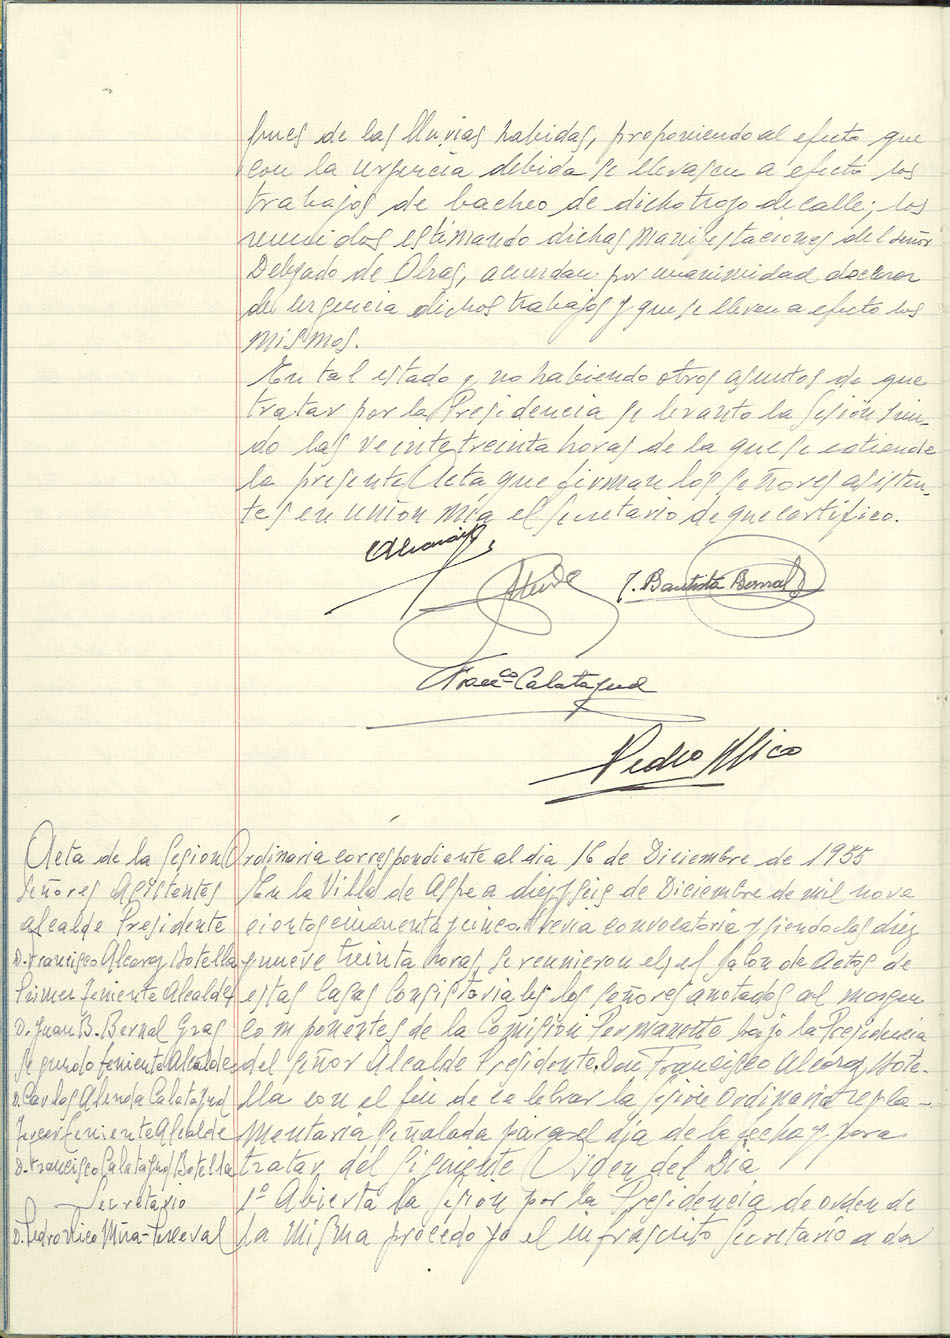 bues de las lluvias habidas, proponiendo al efecto que
con la urgencia debida se llevasen a efecto los
trabajos de bacheo de dicho trozo de calle; los
reunidos estimando dichas manifestaciones del señor
Delegado de Obras, acuerdan por unanimidad declarar
de urgencia dichos trabajos y que se lleven a efecto los
mismos.
En tal estado y no habiendo otros asuntos de que
tratar por la Presidencia se levanto la sesión sien-
do las veinte treinta horas de la que se extiende
la presente Acta que firman los señores asisten-
tes en unión mía el Secretario de que certifico.
J. Bautista Bernal
Franco Calatayud
Pedro Rico
Acta de la sesion Ordinaria correspondiente al dia 16 de Diciembre de 1955
Señores Asistentes
Alcalde Presidente
D. Francisco Alcaraz Botella
Primer Teniente Alcalde
D. Juan B. Bernal Gras
Segundo Teniente Alcalde
D. Carlos Alenda Calatayud
Tercer Teniente Alcalde
D. Francisco Calatayud Botella
Secretario
D. Pedro Rico Mira-Perceval
En la Villa de Aspe a diez y seis de Diciembre de mil nove
cientos cincuenta y cinco. Previa convocatoria y siendo las diez
y nueve treinta horas, se reunieron el salon de Actos de
estas Casas Consistoriales los señores anotados al margen
componentes de la Comision Permanente bajo la Presidencia
del Señor Alcalde Presidente Don Francisco Alcaraz Bote-
lla con el fin de celebrar la sesion Ordinaria regla-
mentaria señalada para el dia de la fecha y para
tratar del siguiente Orden del Dia
1º Abierta la sesion por la Presidencia de orden de
la misma procedo yo el infrascrito Secretario a dar